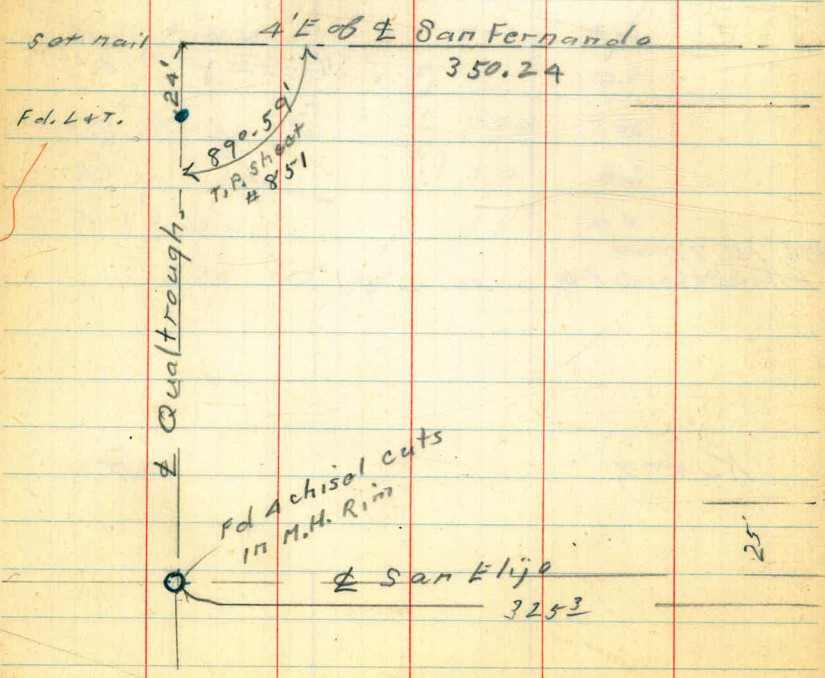 Set nail
4'E of ℄ San Fernando
350.24
24'
Fd. L & T.
89°-59'
T.P. Sheet
# 851
℄ Qualtrough.
Fd 4 chisel cuts
in M.H. Rim
℄ San Elijo
325 3
25'